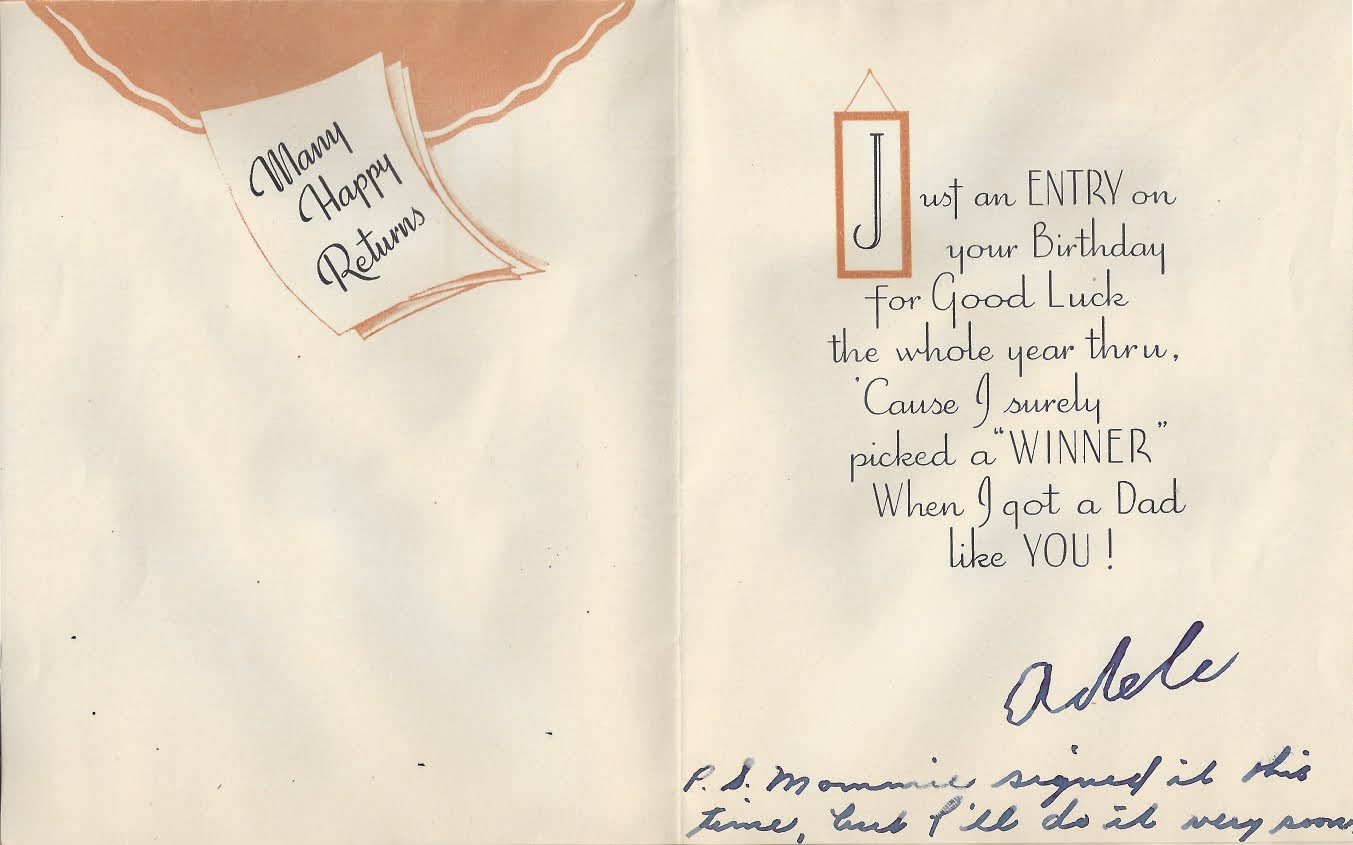 Many
Happy
Returns
Just an ENTRY on
your Birthday
for Good Luck
the whole year thru,
'Cause I surely
picked a "WINNER"
When I got a Dad
like YOU!
Adele
P.S. Mommie signed it this
time, but I'll do it very soon